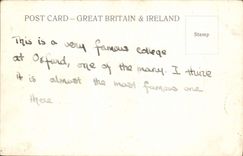 POST CARD – GREAT BRITAIN & IRELAND
Stamp
This is a very famous college
at Oxford, one of the many. I think
it is almost the most famous one
there